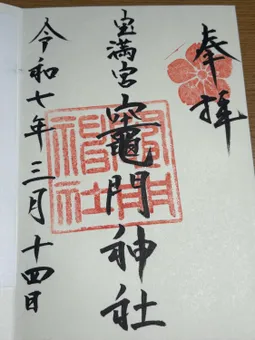 奉拝
宝満宮竈門神社
令和七年三月十四日
竈門神社